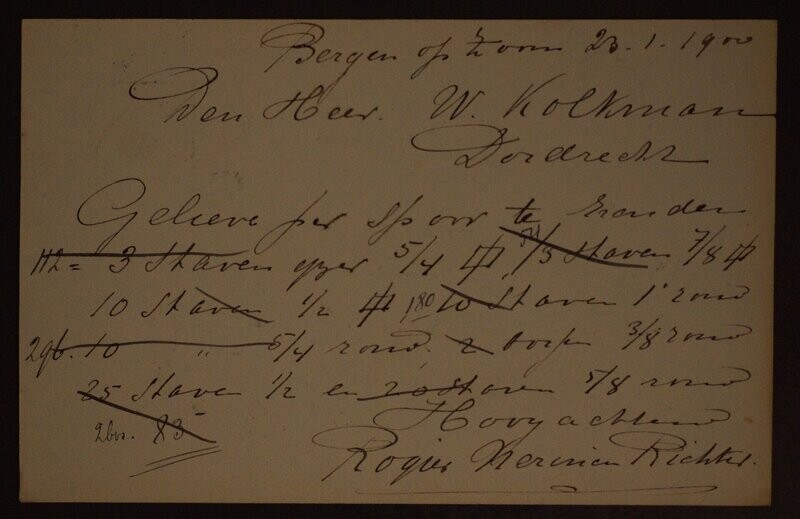 Bergen op Zoom 23.1.1900
Den Heer. W. Kolkman
Dordrecht
Gelieve per Spoor te zenden
112 = 3 Staven yzer 5/4 5 Staven 7/8
10 Staven 1/2 180 10 Staven 1" rond
296. 10 " 5/4 rond, 2 3/8 rond
25 Staven 1/2 en 20 Staven 5/8 rond
83
Hoogachtend
Rogier Richter.